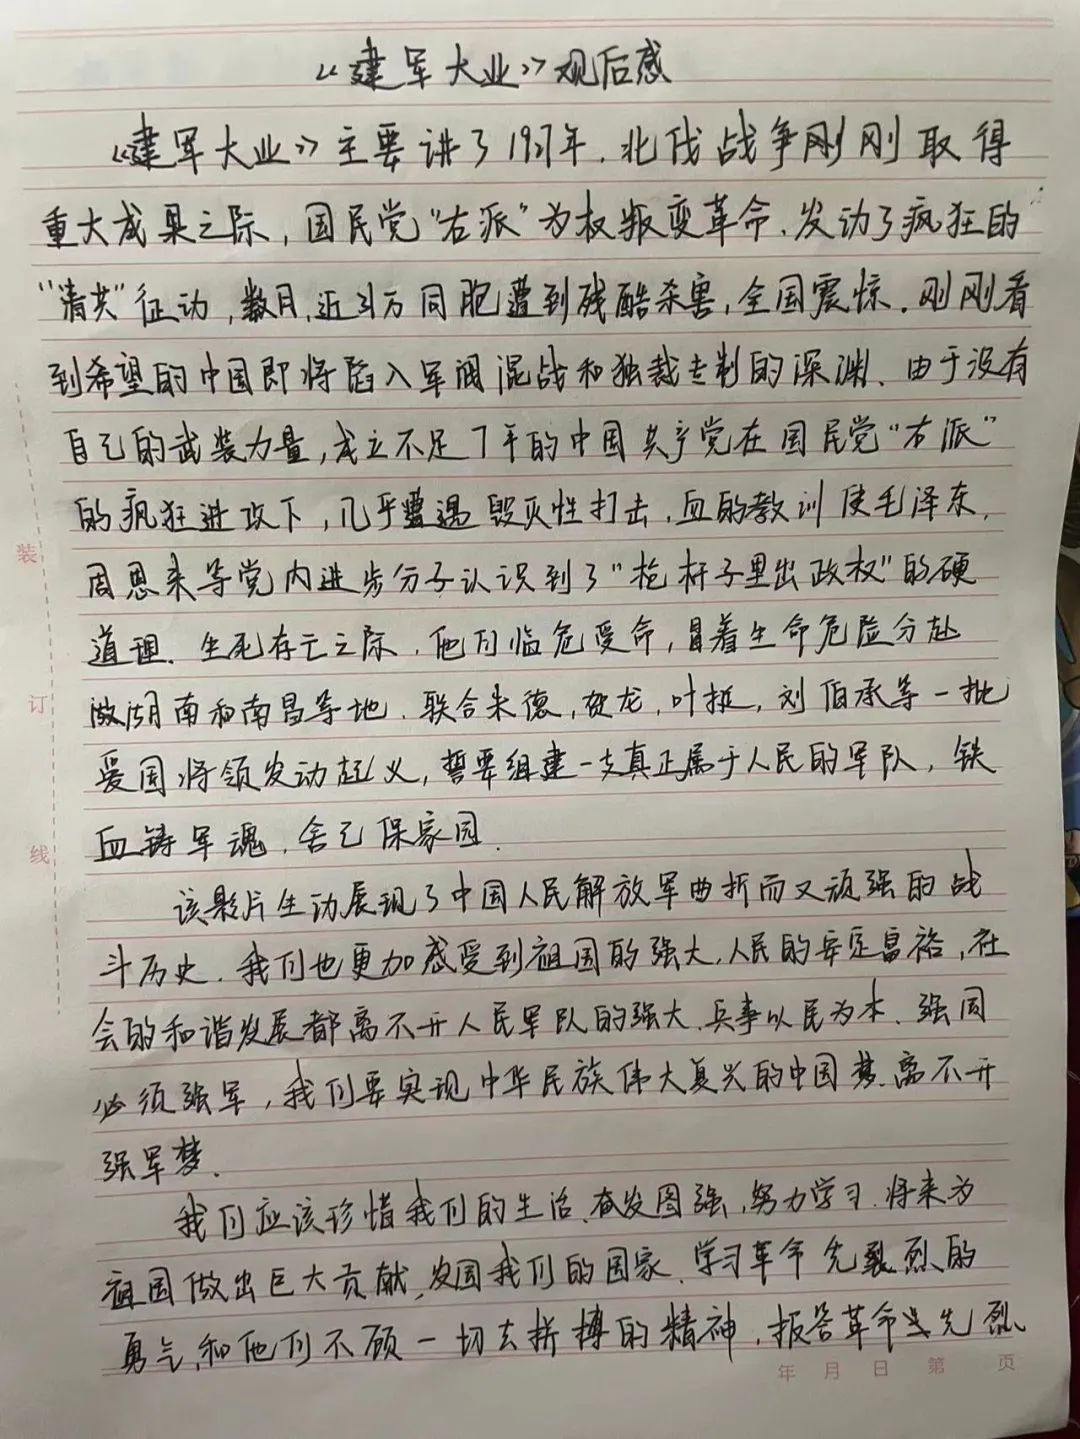 《建军大业》观后感
《建军大业》主要讲了1927年.北伐战争刚刚取得
重大成果之际,国民党"右派"为权叛变革命.发动了疯狂的
"清共"运动,数月,近万同胞遭到残酷杀害,全国震惊.刚刚看
到希望的中国即将陷入军阀混战和独裁专制的深渊.由于没有
自己的武装力量,成立不足7年的中国共产党在国民党"右派"
的疯狂进攻下,几乎遭遇毁灭性打击,血的教训使毛泽东.
周恩来等党内进步分子认识到了"枪杆子里出政权"的硬
道理.生死存亡之际.他们临危受命,冒着生命危险分赴
湖南和南昌等地.联合朱德,贺龙,叶挺,刘伯承等一批
爱国将领发动起义,誓要组建一支真正属于人民的军队,铁
血铸军魂.舍己保家园.
该影片生动展现了中国人民解放军曲折而又顽强的战
斗历史.我们也更加感受到祖国的强大,人民的安定富裕,社
会的和谐发展都离不开人民军队的强大.兵事以民为本.强国
必须强军,我们要实现中华民族伟大复兴的中国梦.离不开
强军梦.
我们应该珍惜我们的生活.奋发图强,努力学习.将来为
祖国做出巨大贡献,发国我们的国家.学习革命先烈的
勇气,和他们不顾一切去拼搏的精神.报答革命先烈
装
订
线
年 月 日 第 页